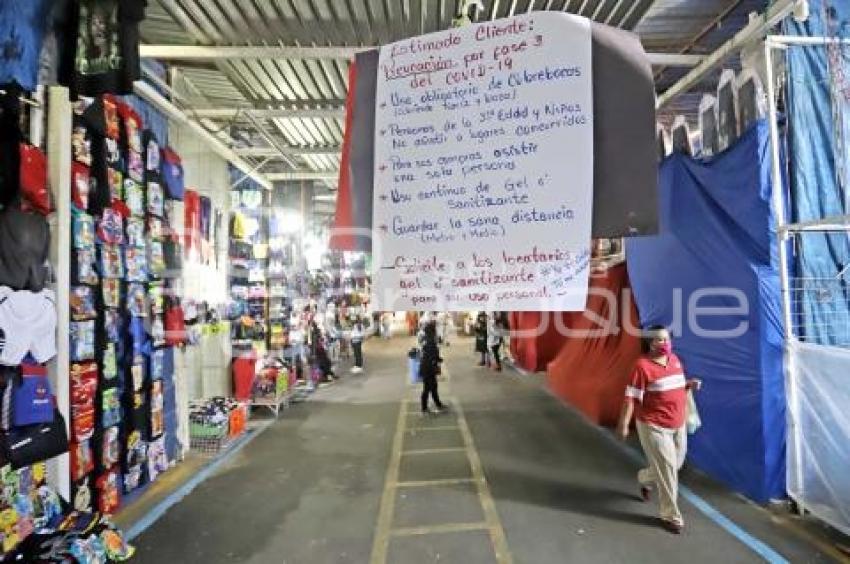 Estimado Cliente:
Prevención por fase 3
del COVID-19
* Uso obligatorio de Cubrebocas
(cubriendo nariz y boca)
* Personas de la 3ª Edad y Niños
No asistir a lugares concurridos
* Para sus compras asistir
una sola persona
* Uso continuo de Gel ó
sanitizante
* Guardar la sana distancia
(Metro y Medio)
- Solicite a los locatarios
gel ó sanitizante
para su uso personal.
agencia
enfoque